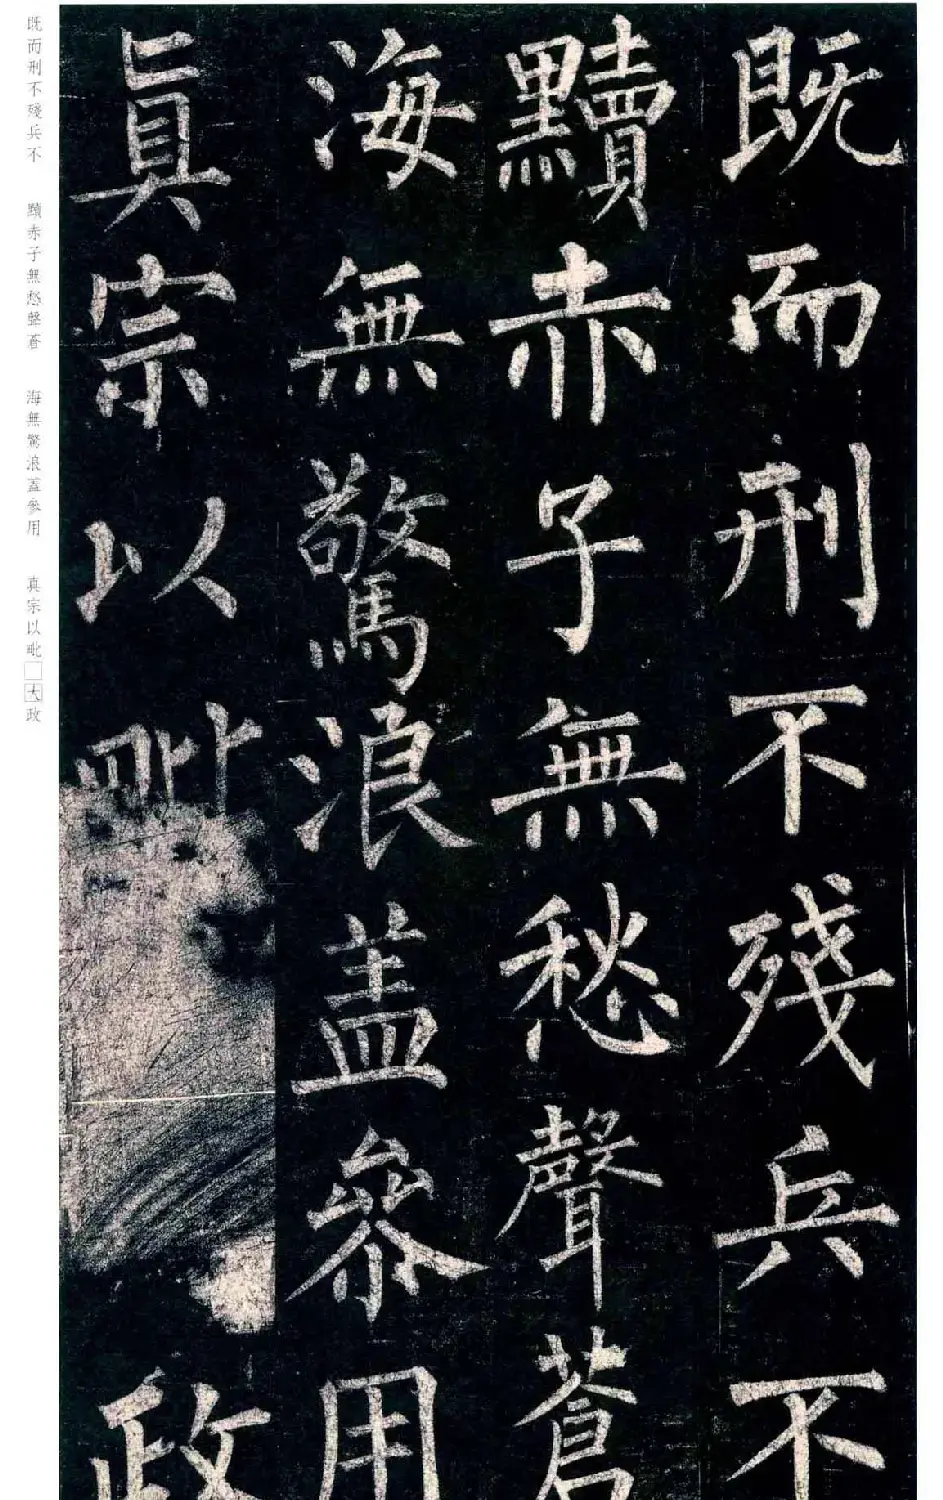 既而刑不殘兵不
黷赤子無愁聲蒼
海無驚浪蓋參用
真宗以毗
政
既而刑不殘兵不 黷赤子無愁聲蒼 海無驚浪蓋參用 真宗以毗□大政